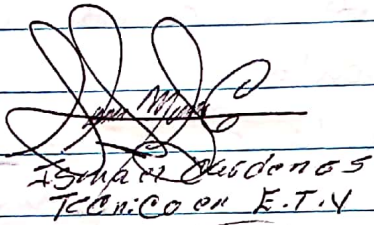 Ismael Cardenas
Tecnico en E.T.V